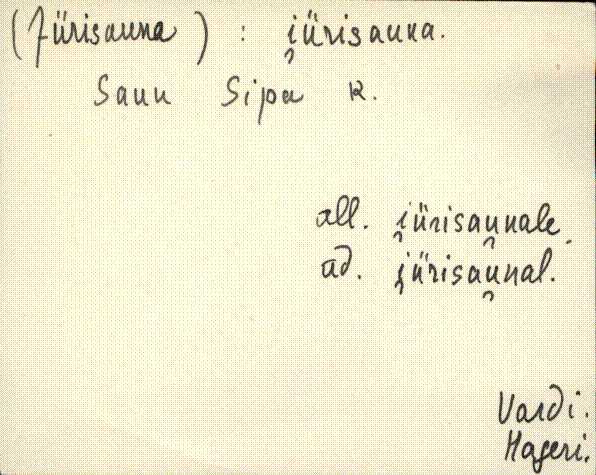 (Jürisauna) : i̯ürisauna.
Saun Sipa k.
all. i̯ürisau̯nale.
ad. i̯ürisau̯nal.
Vardi.
Hageri.